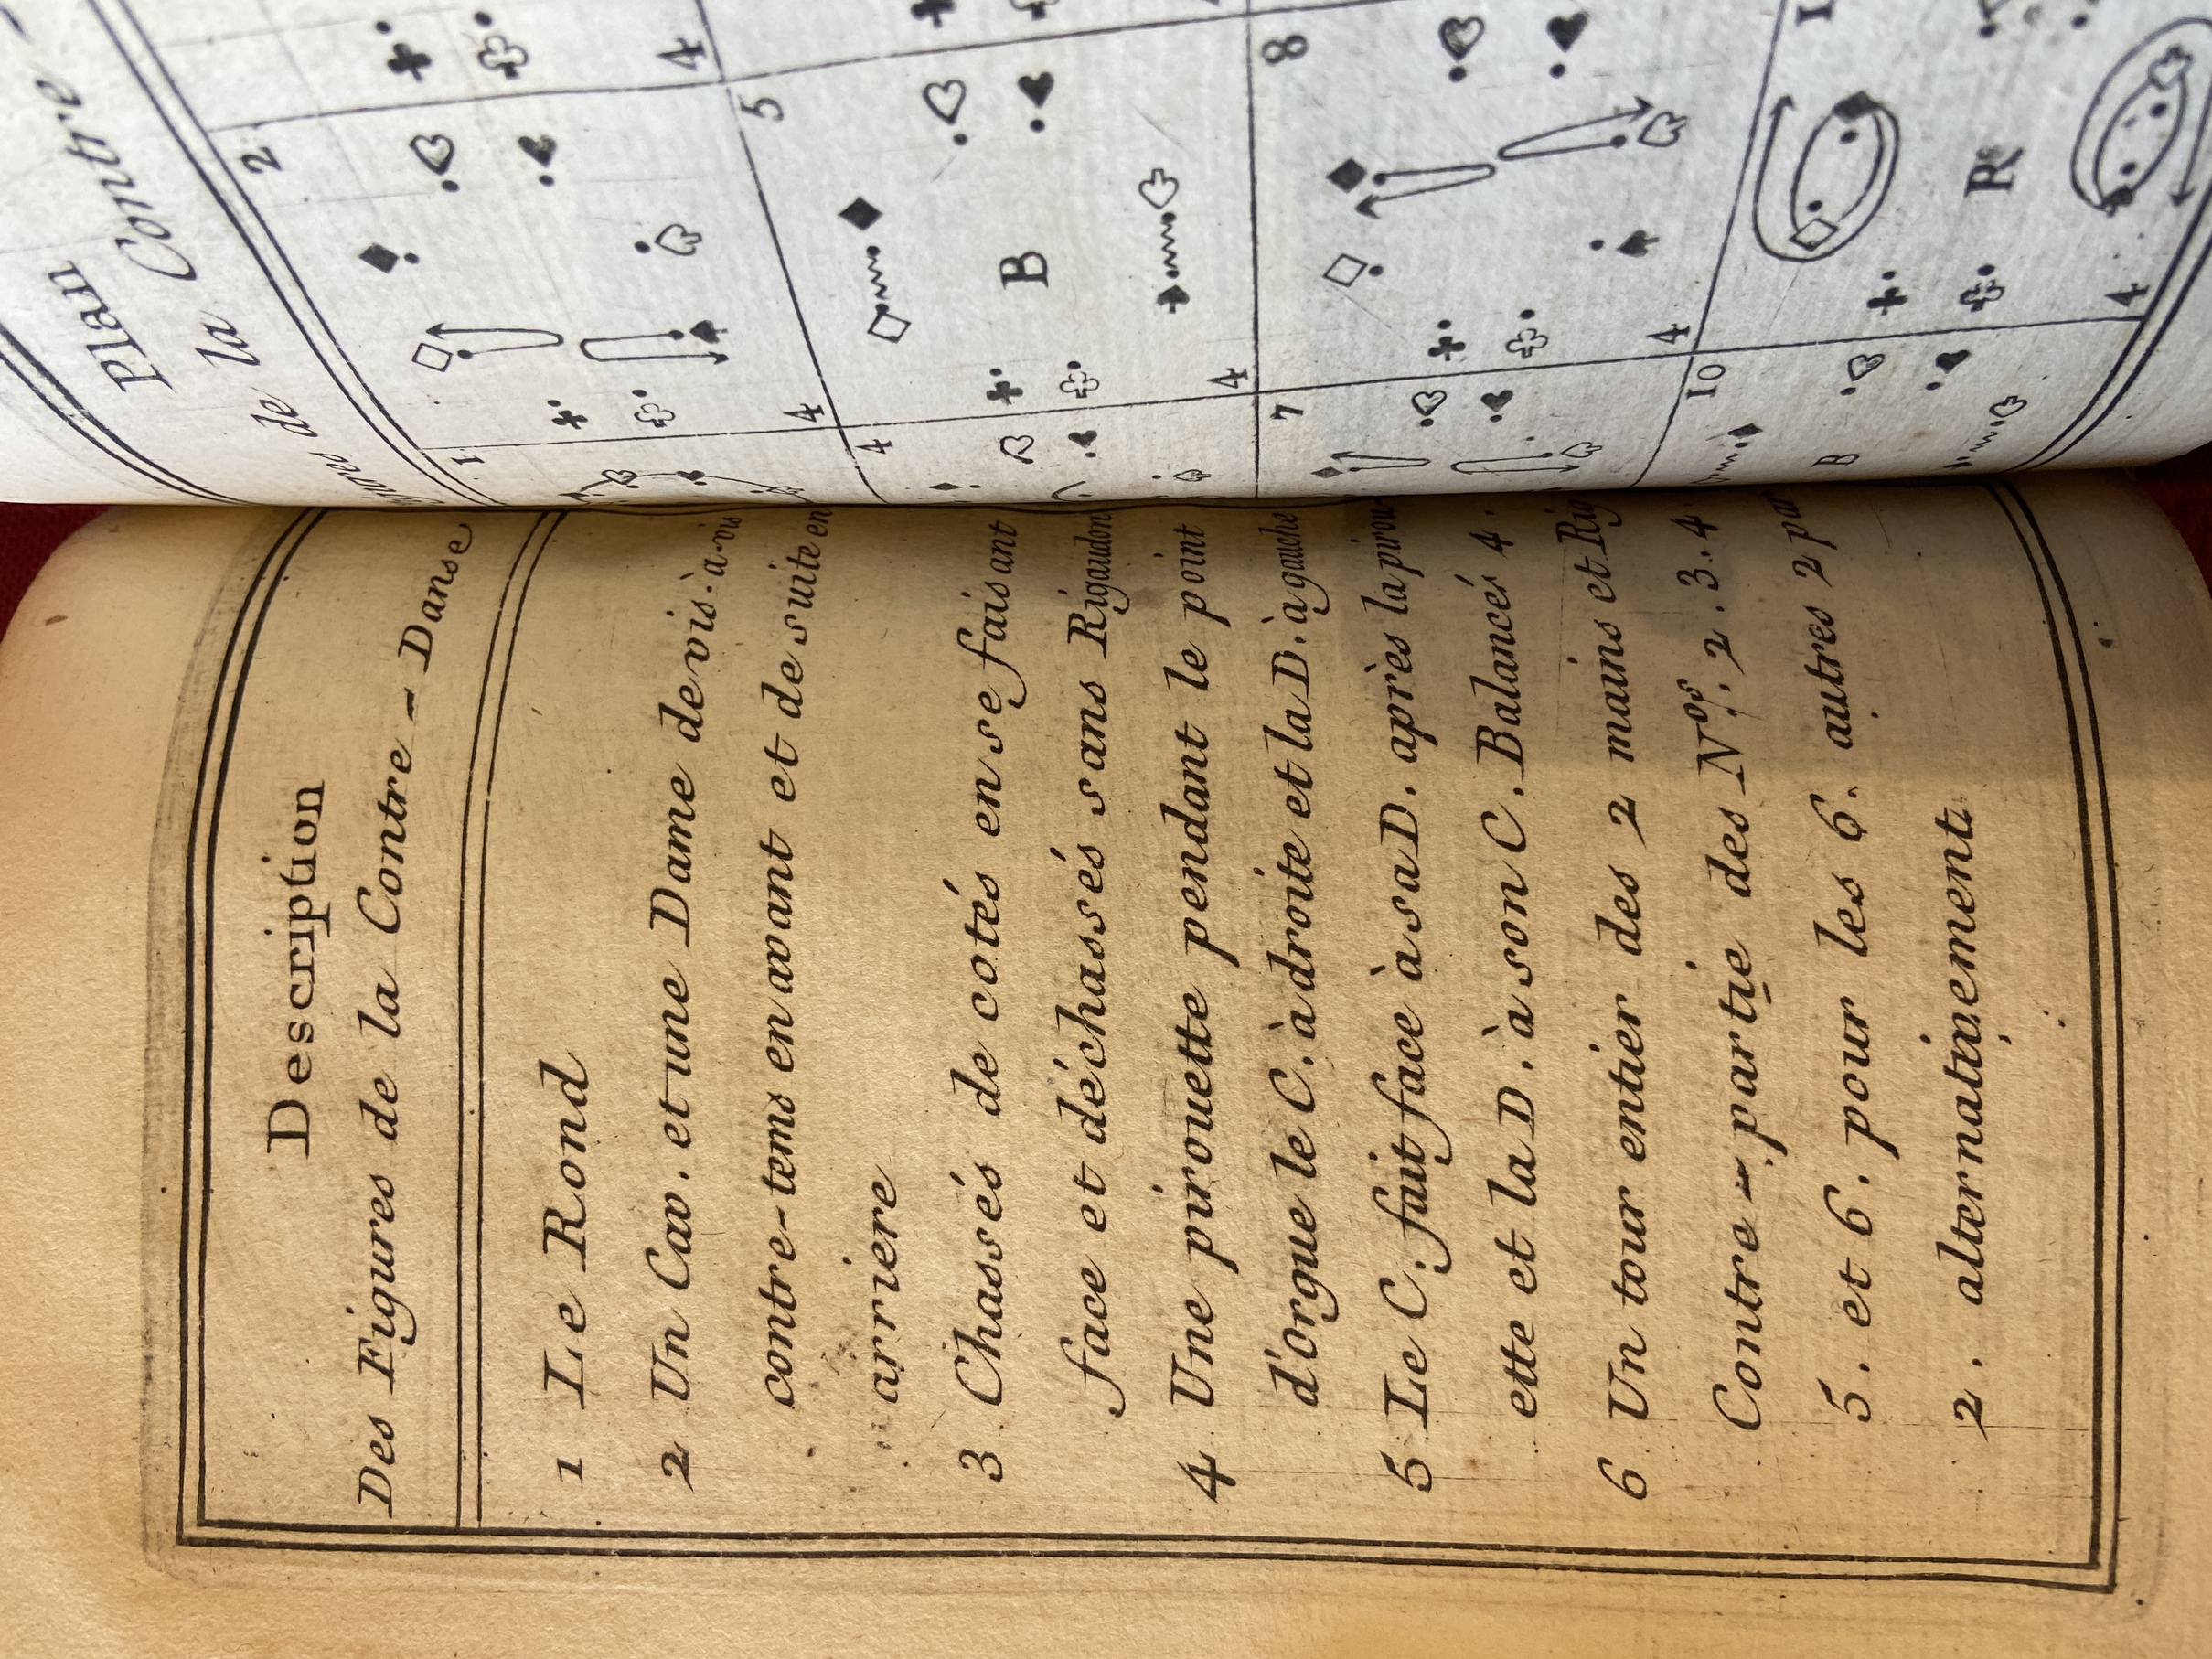 Description
Des Figures de la Contre-Danse
1 Le Rond
2 Un Cav. et une Dame de vis-à-vis
contre-tems en avant et de suite en
arriere
3 Chassés de cotés en se faisant
face et déchassés sans Rigaudon
4 Une pirouette pendant le point
d'Orgue le C. à droite et la D. à gauche
5 Le C. fait face à sa D. après la pirou
ette et la D. à son C. Balancés 4.
6 Un tour entier des 2 mains et Rig
Contre-partie des Nos. 2. 3. 4
5. et 6. pour les 6. autres 2 par
2. alternativement.
Plan
de la Contre-
2
4
5
B
4
8
4
R
4
1
4
7
10
B